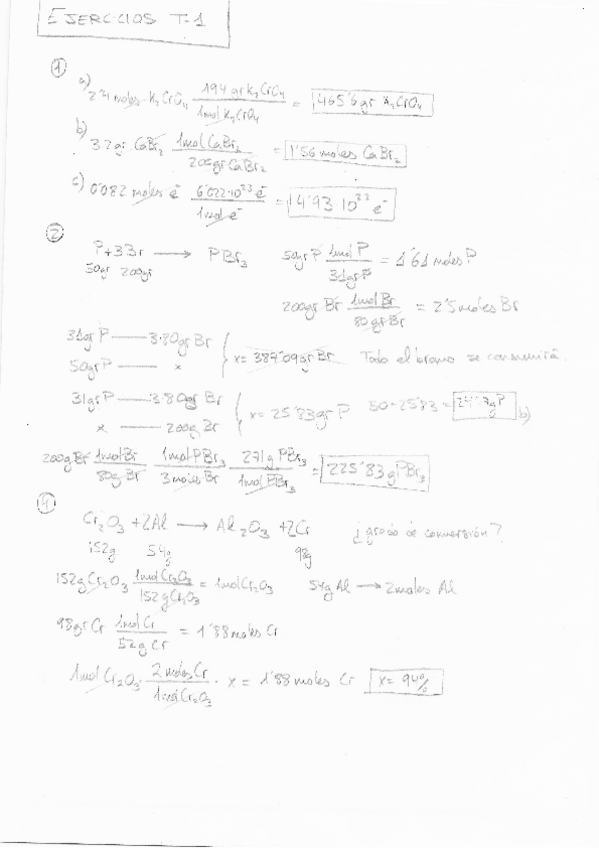 EJERCICIOS T-1
①
a) 2'4 moles K₂CrO₄ 194 gr K₂CrO₄ / 1mol K₂CrO₄ = 465'6 gr K₂CrO₄
b) 312 gr CaBr₂ 1mol CaBr₂ / 200 gr CaBr₂ = 1'56 moles CaBr₂
c) 0'082 moles e⁻ 6'022·10²³ e⁻ / 1mol e⁻ = 4'93 10²² e⁻
②
P + 3Br ⟶ PBr₃ 50gr P 1mol P / 31gr P = 1'61 moles P
50gr 200gr
200gr Br 1mol Br / 80gr Br = 2'5 moles Br
31gr P —— 3·80gr Br
50gr P —— x } x = 387'09gr Br Todo el bromo se consumirá.
31gr P —— 3·80gr Br
x —— 200g Br } x = 25'83gr P 50-25'83 = 24'17g P b)
200g Br 1mol Br / 80g Br 1mol PBr₃ / 3 moles Br 271g PBr₃ / 1mol PBr₃ = 225'83 g PBr₃
④
Cr₂O₃ + 2Al ⟶ Al₂O₃ + 2Cr ¿grado de conversión?
152g 54g 98g
152g Cr₂O₃ 1mol Cr₂O₃ / 152g Cr₂O₃ = 1mol Cr₂O₃ 54g Al ⟶ 2moles Al
98gr Cr 1mol Cr / 52g Cr = 1'88 moles Cr
1mol Cr₂O₃ · 2 moles Cr / 1mol Cr₂O₃ · x = 1'88 moles Cr x = 94%